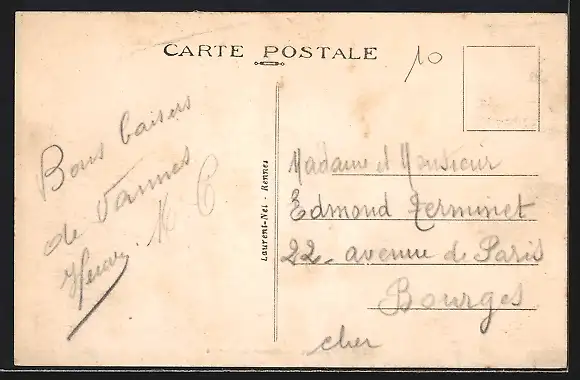 CARTE POSTALE
10
Bons baisers
de Vannes
Laurent-Nel - Rennes
Madame et Monsieur
Edmond Terminet
22 - avenue de Paris
Bourges
cher